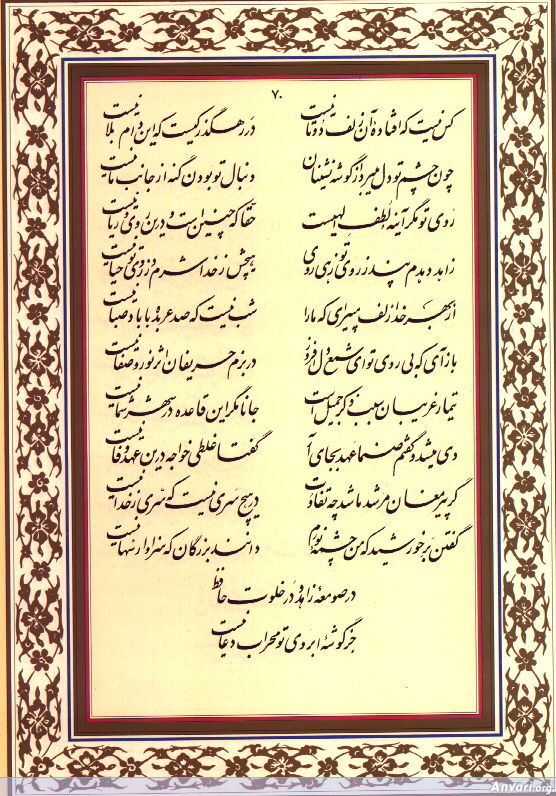 ۷۰
کس نیست که افتادهٔ آن زلف دوتا نیست در رهگذر کیست که این دام بلا نیست
چون چشم تو دل میبرد از گوشه نشینان دنبال تو بودن گنه از جانب ما نیست
روی تو مگر آینهٔ لطف الهیست حقا که چنین است و درین روی و ریا نیست
زاهد دهدم پند ز روی تو زهی روی هیچش ز خدا شرم و ز روی تو حیا نیست
از بهر خدا زلف مپیرای که ما را شب نیست که صد عربده با باد صبا نیست
بازآی که بی روی تو ای شمع دل افروز در بزم حریفان اثر نور و صفا نیست
تیمار غریبان سبب ذکر جمیل است جانا مگر این قاعده در شهر شما نیست
دی میشد و گفتم صنما عهد بجای آر گفتا غلطی خواجه درین عهد وفا نیست
گر پیر مغان مرشد ما شد چه تفاوت در هیچ سری نیست که سری ز خدا نیست
گفتن بر خورشید که من چشمهٔ نورم دانند بزرگان که سزاوار سها نیست
در صومعهٔ زاهد و در خلوت حافظ
جز گوشهٔ ابروی تو محراب دعا نیست
Anvari.org